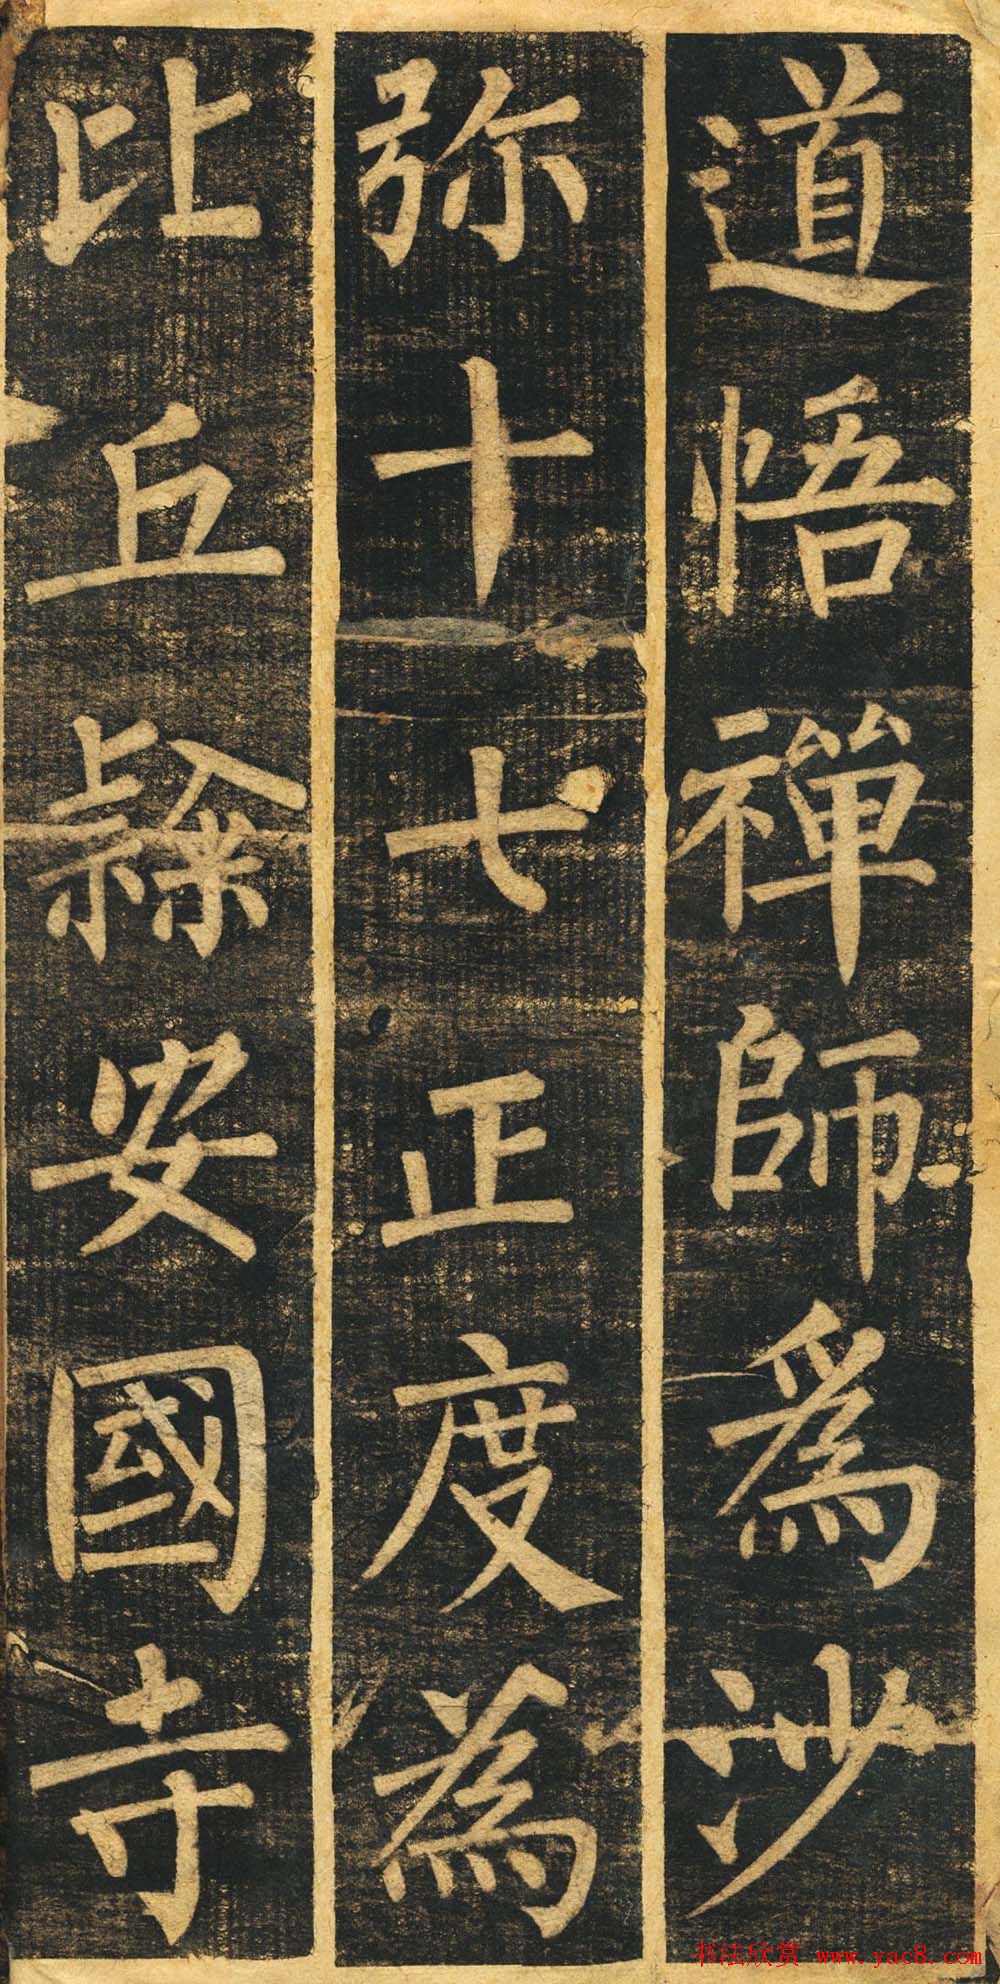 道悟禪師爲沙
弥十七正度為
比丘𨽻安國寺
书法欣赏 www.yac8.com